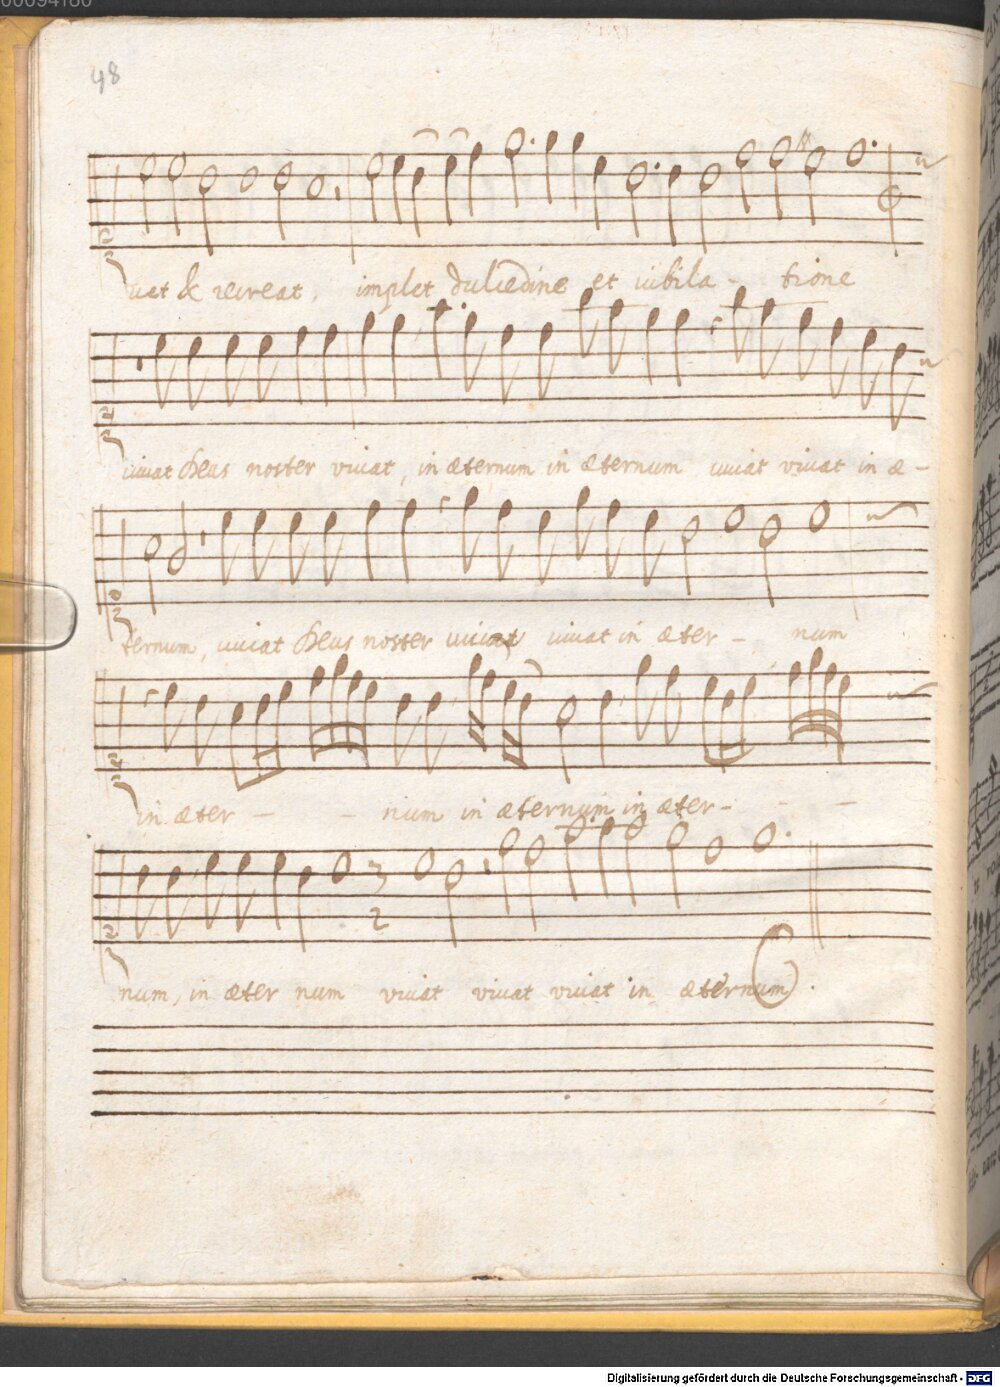 00094180
48
uat & recreat, implet dulcedine et iubila - tione
vivat Deus noster vivat, in æternum in æternum vivat vivat in æ -
ternum, vivat Deus noster vivat vivat in æter - num
in æter - - num in æternum in æter - - -
3
2
num, in æter num vivat vivat vivat in æternum.
Digitalisierung gefördert durch die Deutsche Forschungsgemeinschaft - DFG